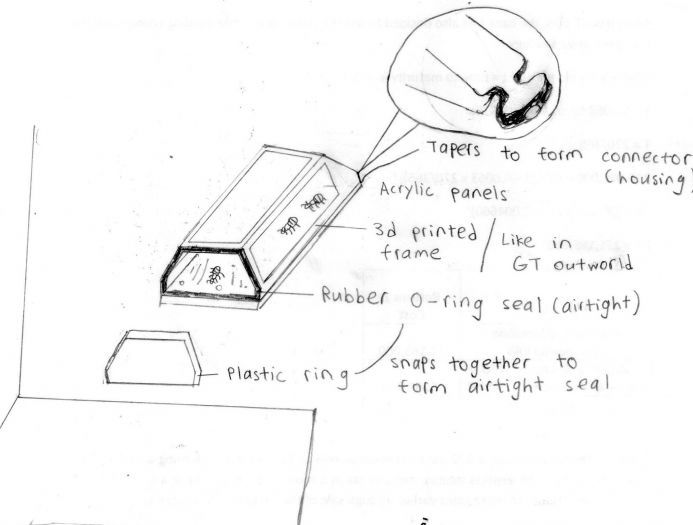 Tapers to form connector
(housing)
Acrylic panels
3d printed
frame
/ Like in
GT outworld
Rubber O-ring seal (airtight)
Plastic ring
snaps together to
form airtight seal